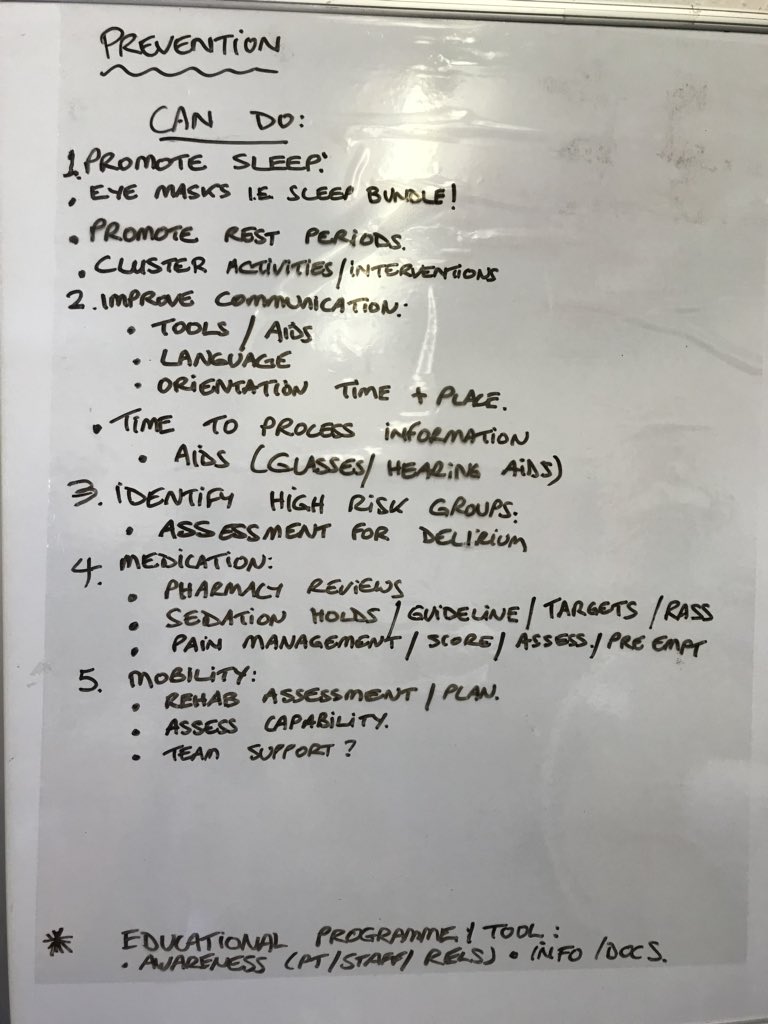 PREVENTION
CAN DO:
1. PROMOTE SLEEP:
• EYE MASKS I.E. SLEEP BUNDLE!
• PROMOTE REST PERIODS.
• CLUSTER ACTIVITIES/INTERVENTIONS
2. IMPROVE COMMUNICATION:
• TOOLS / AIDS
• LANGUAGE
• ORIENTATION TIME + PLACE.
• TIME TO PROCESS INFORMATION
• AIDS (GLASSES/ HEARING AIDS)
3. IDENTIFY HIGH RISK GROUPS:
• ASSESSMENT FOR DELIRIUM
4. MEDICATION:
• PHARMACY REVIEWS
• SEDATION HOLDS / GUIDELINE / TARGETS / RASS
• PAIN MANAGEMENT / SCORE / ASSESS. / PRE EMPT
5. MOBILITY:
• REHAB ASSESSMENT / PLAN.
• ASSESS CAPABILITY.
• TEAM SUPPORT?
* EDUCATIONAL PROGRAMME / TOOL:
• AWARENESS (PT/STAFF/ RELS) • INFO / DOCS.